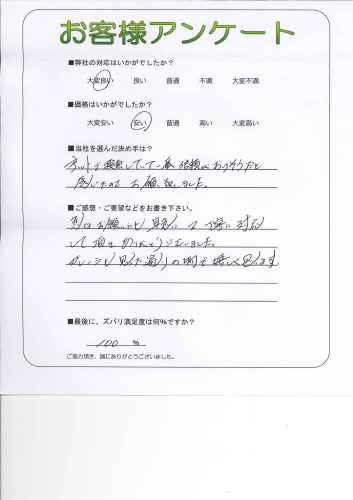 お客様アンケート
■弊社の対応はいかがでしたか？
大変良い 良い 普通 不満 大変不満
■価格はいかがでしたか？
大変安い 安い 普通 高い 大変高い
■当社を選んだ決め手は？
ネットで検索していて一番信頼がおけそうだと
感じたのでお願い致しました。
■ご感想・ご要望などをお書き下さい。
急なお願いにも 丁寧に対応
して頂きありがとうございました。
見た通りの 嬉しく思います
■最後に、ズバリ満足度は何％ですか？
100 %
ご協力頂き、誠にありがとうございました。